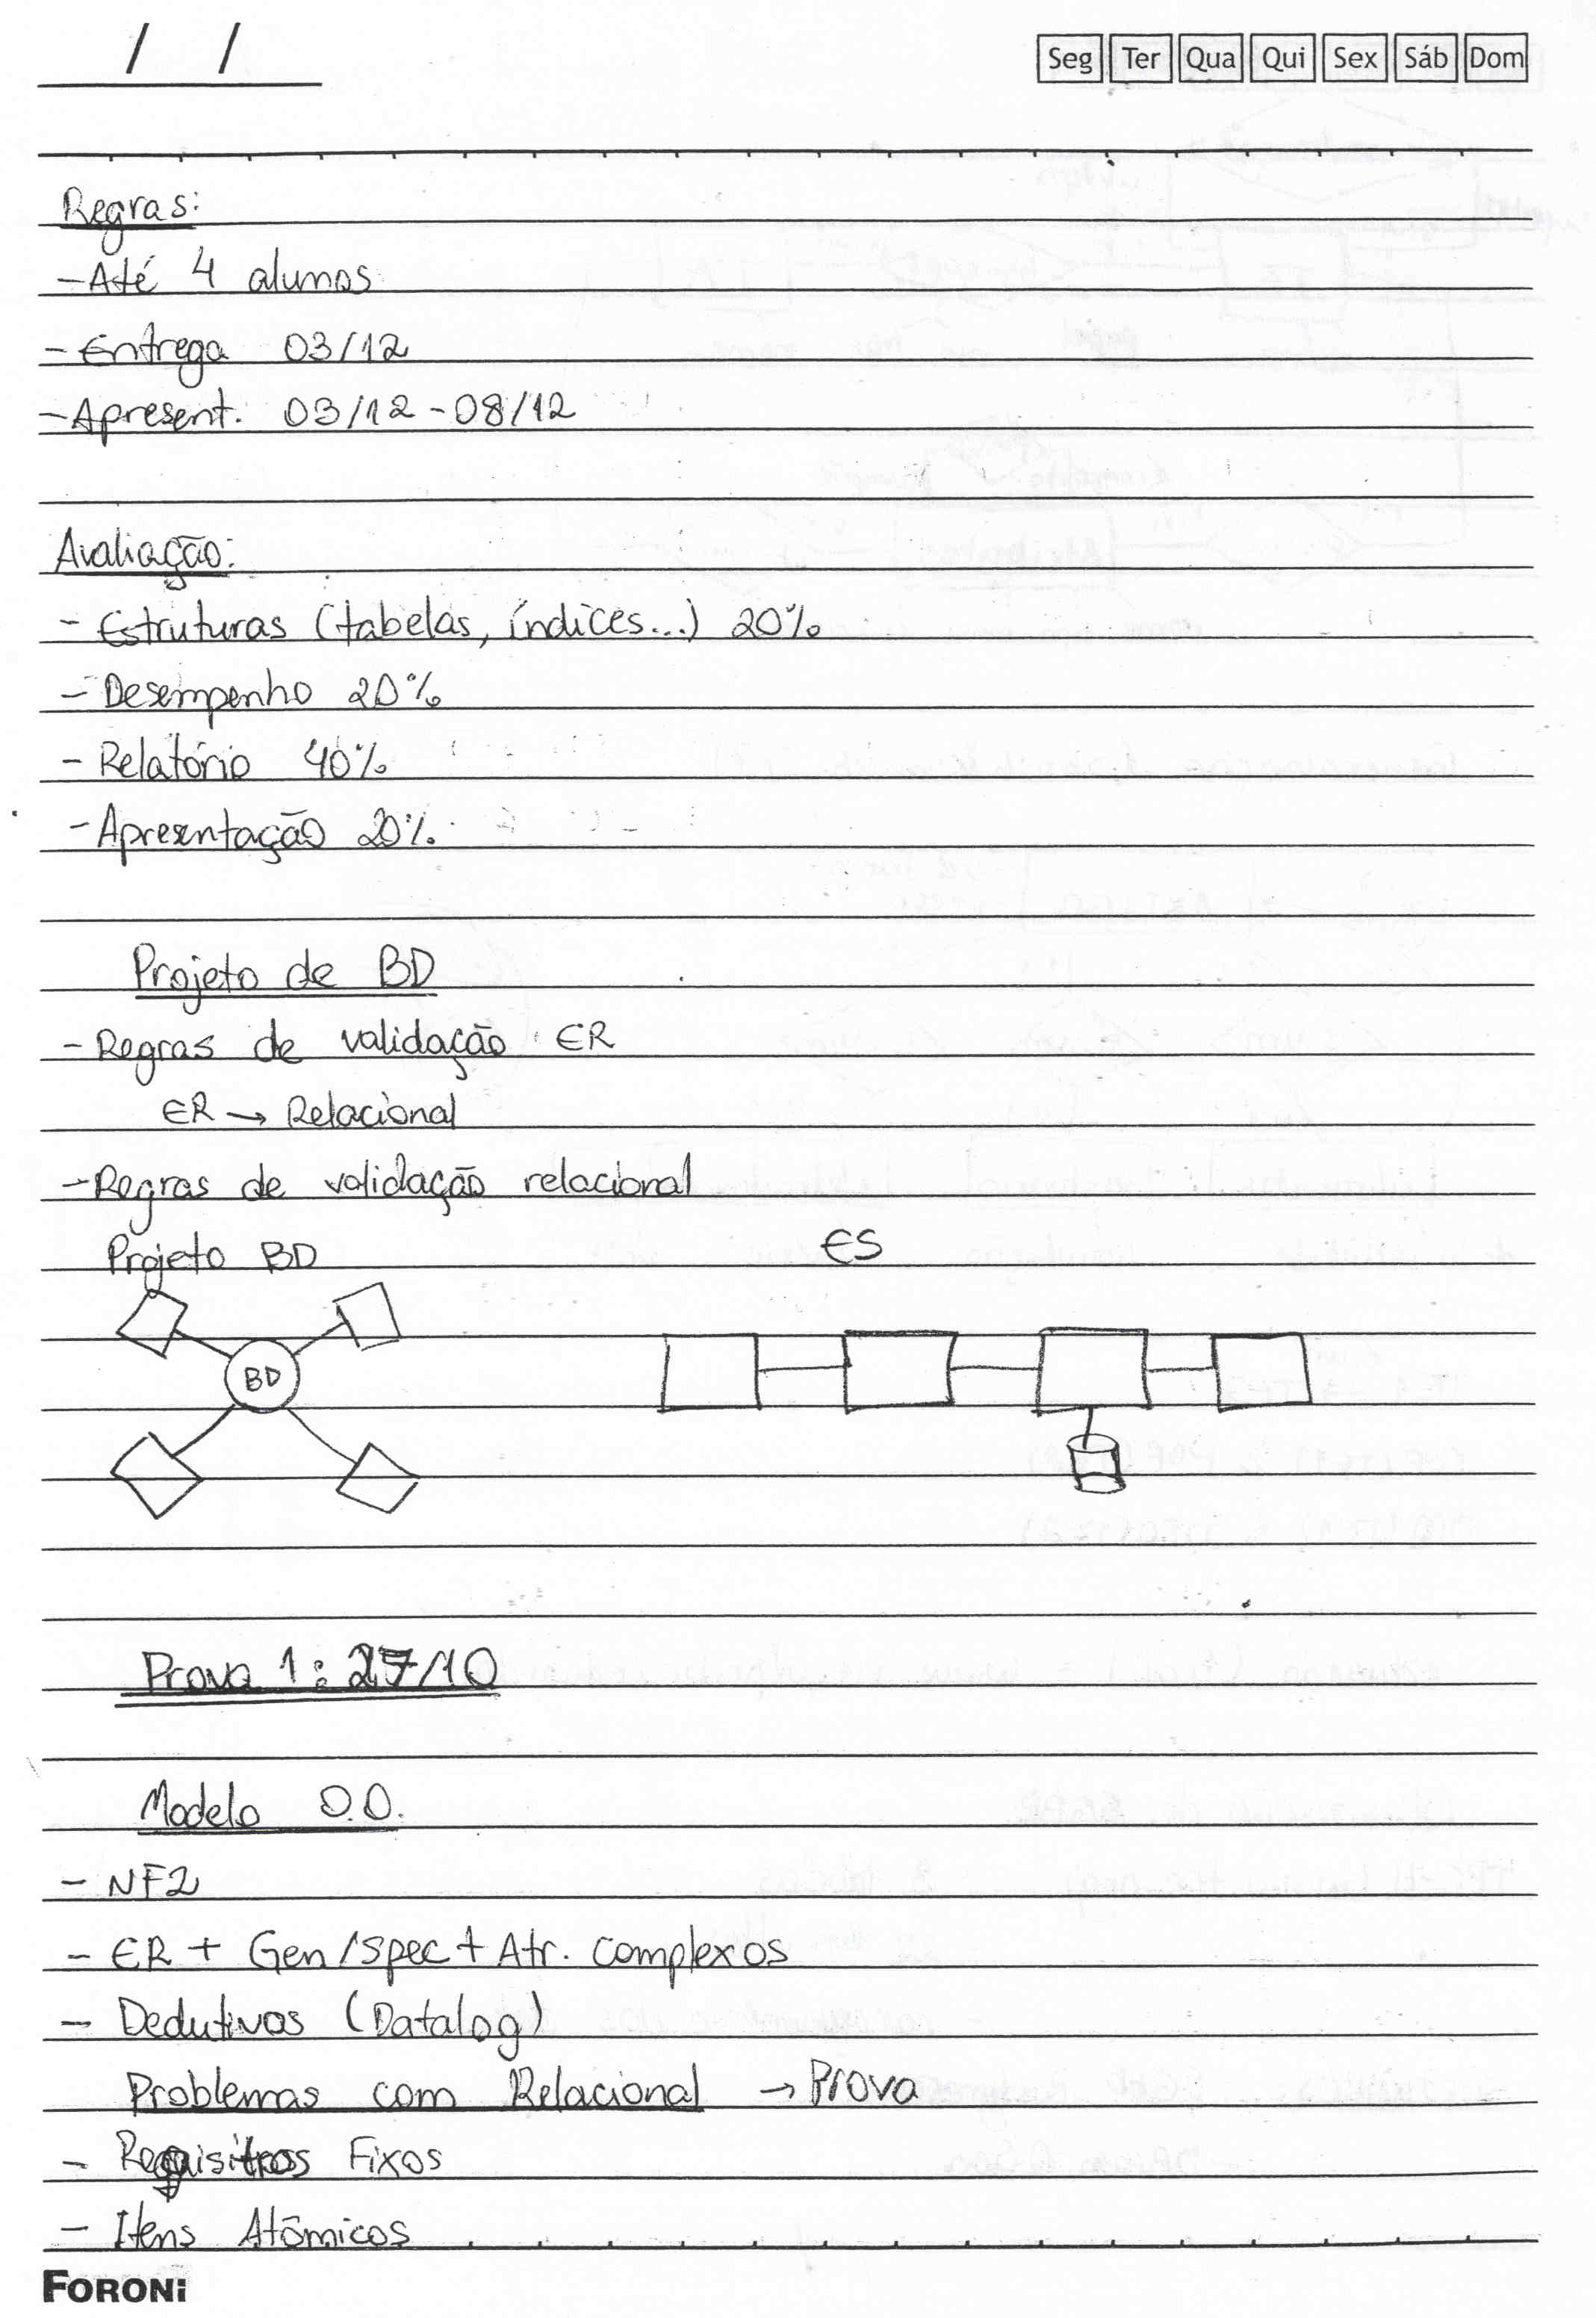 / /
Seg Ter Qua Qui Sex Sáb Dom
Regras:
- Até 4 alunos
- Entrega 03/12
- Apresent. 03/12 - 08/12
Avaliação:
- Estruturas (tabelas, índices...) 20%
- Desempenho 20%
- Relatório 40%
- Apresentação 20%
Projeto de BD
- Regras de validação ER
ER → Relacional
- Regras de validação relacional
Projeto BD
ES
BD
Prova 1: 27/10
Modelo O.O.
- NF2
- ER + Gen/Spec + Atr. Complexos
- Dedutivos (Datalog)
Problemas com Relacional → Prova
- Fixos
- Itens Atômicos
FORONi